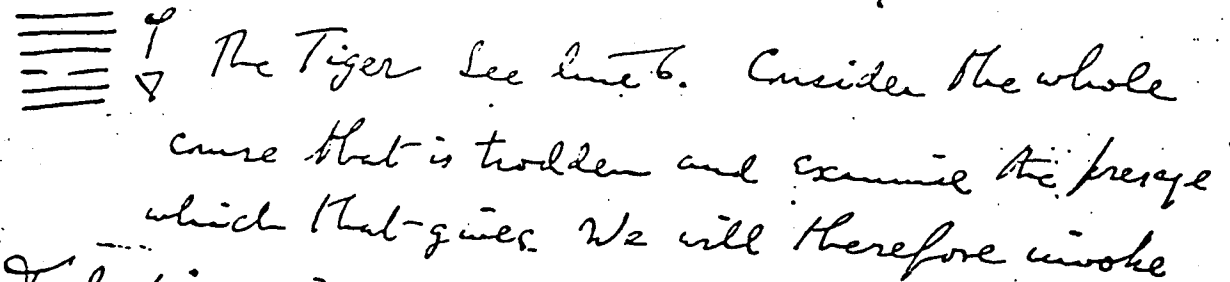 The Tiger See line 6. Consider the whole
course that is trodden and examine the presage
which that gives. We will therefore invoke